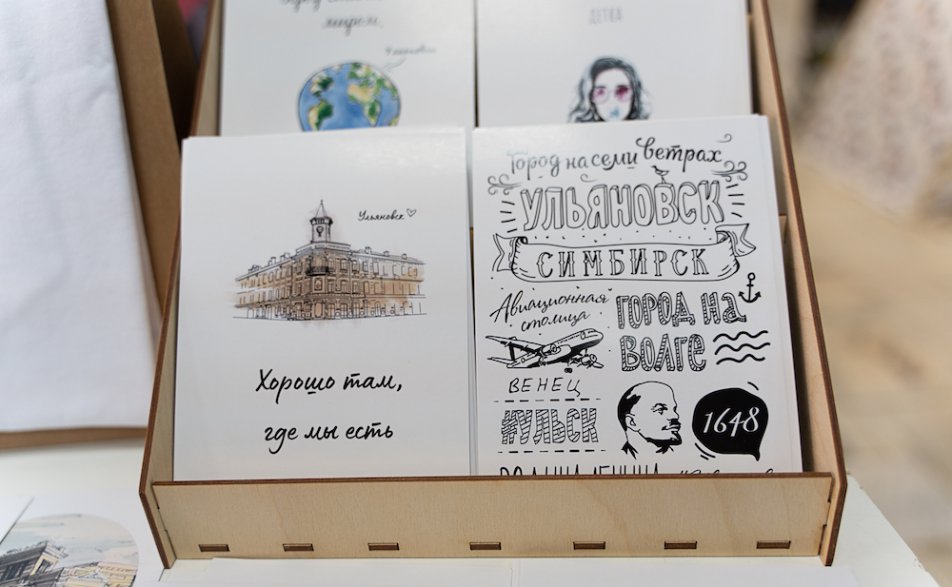 миром.
Ульяновск
ДЕТКА
Ульяновск
Хорошо там,
где мы есть
Город на семи ветрах
УЛЬЯНОВСК
СИМБИРСК
Авиационная
столица
ГОРОД НА
ВОЛГЕ
ВЕНЕЦ
#УЛЬСК
1648
РОДИНА ЛЕНИНА